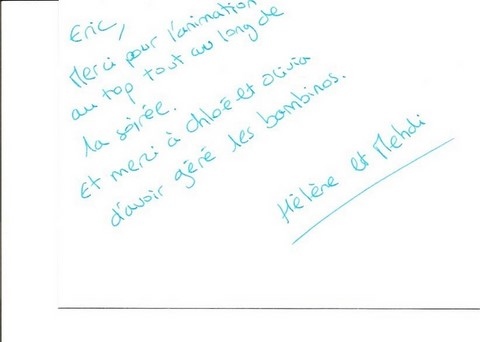 Eric,
Merci pour l'animation
au top tout au long de
la soirée.
Et merci à Chloé et Olivia
d'avoir géré les bambinos.
Hélène et Mehdi